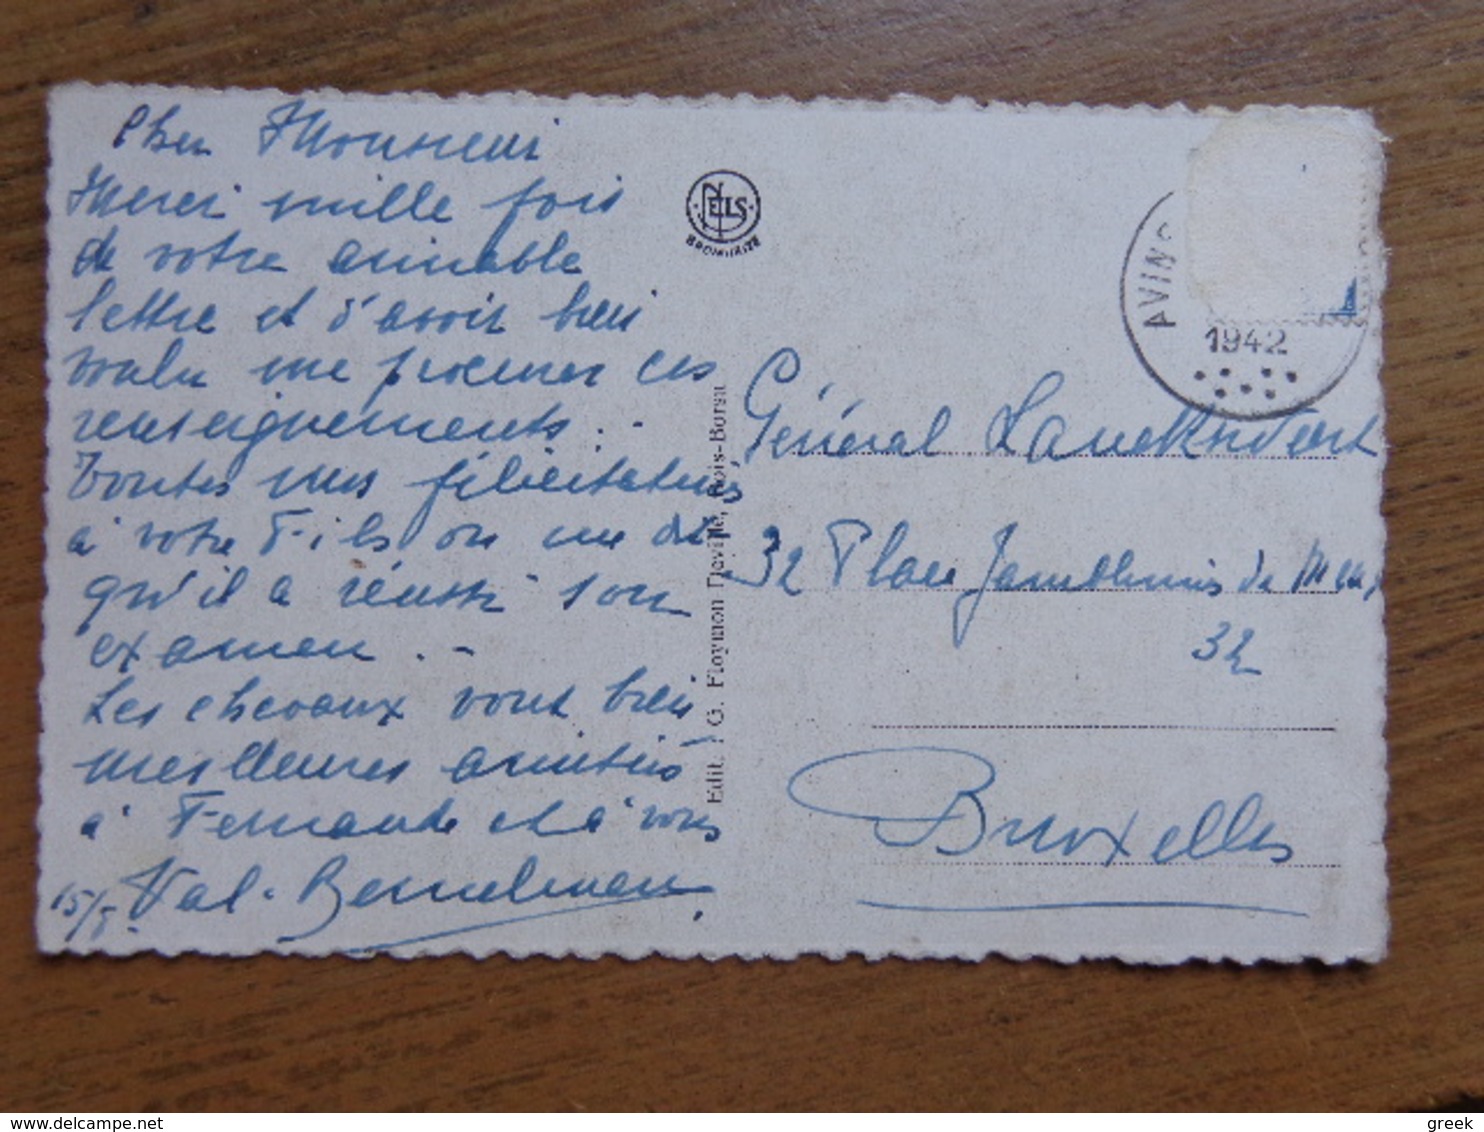 Cher Monsieur
Merci mille fois
de votre aimable
lettre et d'avoir bien
voulu me procurer ces
renseignements. -
Toutes mes félicitations
à votre Fils on me dit
qu'il a réussi son
examen. -
Les chevaux vont bien
meilleures amitiés
à Fernande et à vous
15/8. Val.
NELS
BROMURITE
Edit. : G. Floymon Deville, Bois-Borsu
AVINS
1942
Général
32 Place
32
Bruxelles
delcampe.net
greek